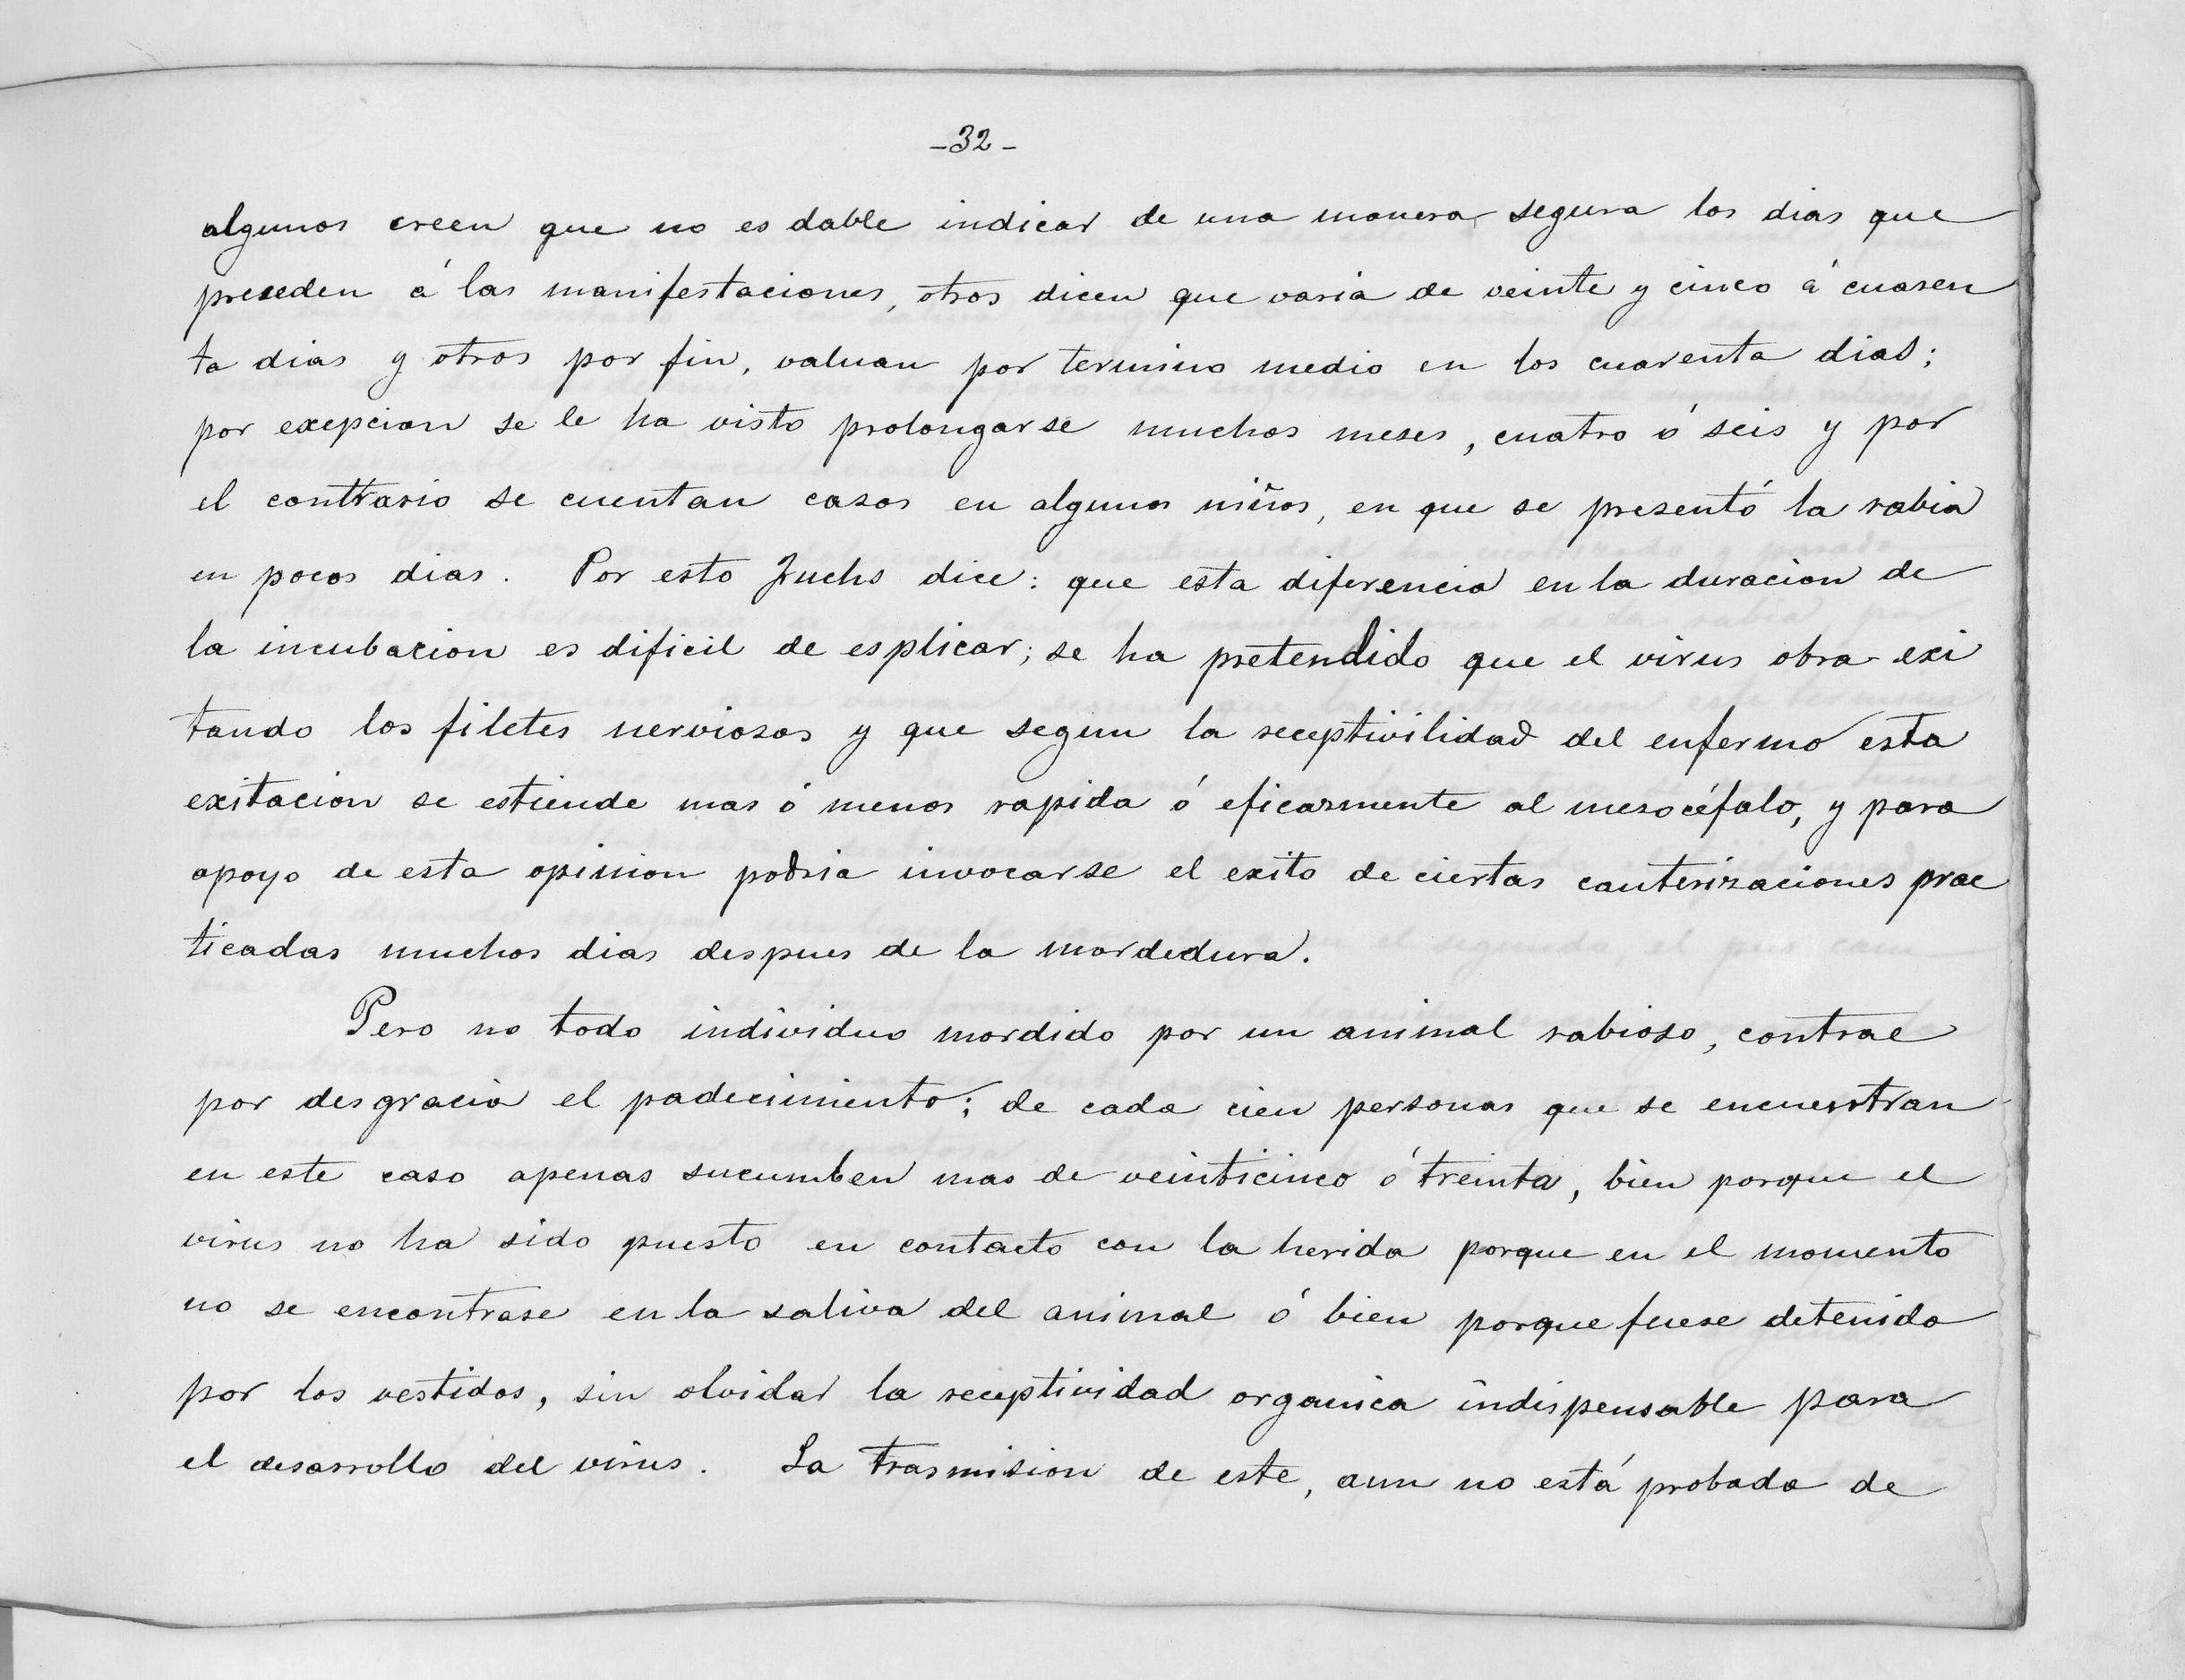 -32-
algunos creen que no es dable indicar de una manera segura los dias que
preceden á las manifestaciones, otros dicen que varia de veinte y cinco á cuaren
ta dias y otros por fin, valuan por termino medio en los cuarenta dias;
por exepcion se le ha visto prolongarse muchos meses, cuatro ó seis y por
el contrario se cuentan casos en algunos niños, en que se presentó la rabia
en pocos dias. Por esto Juchs dice: que esta diferencia en la duracion de
la incubacion es dificil de esplicar; se ha pretendido que el virus obra exi
tando los filetes nerviosos y que segun la receptivilidad del enfermo esta
exitacion se estiende mas ó menos rapida ó eficazmente al mesocéfalo, y para
apoyo de esta opinion podria invocarse el exito de ciertas cauterizaciones prac
ticadas muchos dias despues de la mordedura.
Pero no todo individuo mordido por un animal rabioso, contrae
por desgracia el padecimiento; de cada cien personas que se encuentran
en este caso apenas sucumben mas de veinticinco ó treinta, bien porque el
virus no ha sido puesto en contacto con la herida porque en el momento
no se encontrase en la saliva del animal ó bien porque fuese detenido
por los vestidos, sin olvidar la receptividad organica indispensable para
el desarrollo del virus. La trasmision de este, aun no está probada de